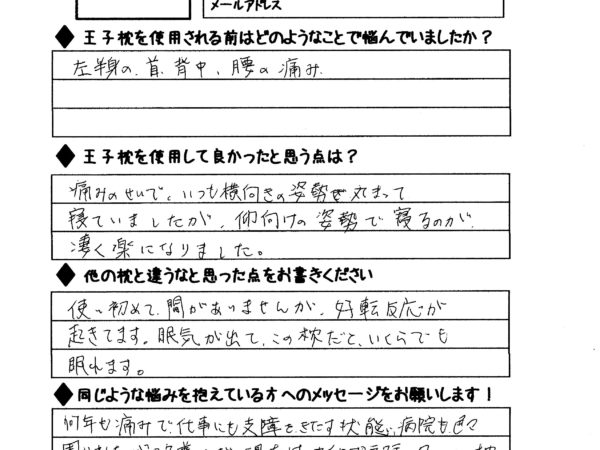 メールアドレス
◆王子枕を使用される前はどのようなことで悩んでいましたか？
左半身の、首、背中、腰の痛み
◆王子枕を使用して良かったと思う点は？
痛みのせいで、いつも横向きの姿勢で丸まって
寝ていましたが、仰向けの姿勢で寝るのが
凄く楽になりました。
◆他の枕と違うなと思った点をお書きください
使い初めて、間がありませんが、好転反応が
起きてます。眠気が出て、この枕だと、いくらでも
眠れます。
◆同じような悩みを抱えている方へのメッセージをお願いします！
何年も痛みで仕事にも支障をきたす状態、病院も色々